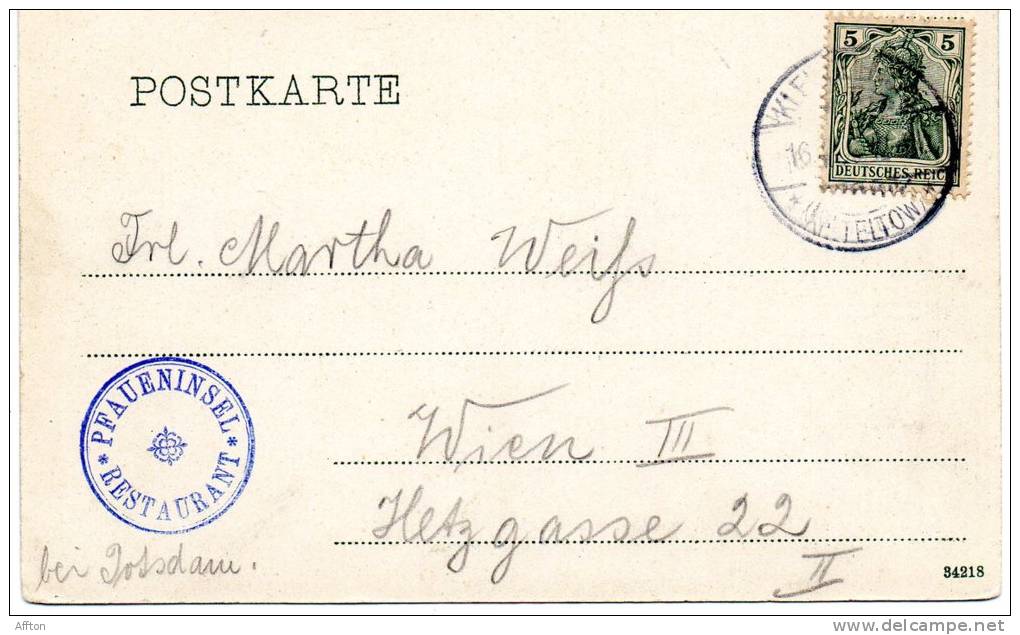 POSTKARTE
5 5
DEUTSCHES REICH
16.
* (KR. TELTOW) *
Frl. Martha Weiß
PFAUENINSEL
* RESTAURANT *
Wien III
Hetzgasse 22
II
bei Potsdam.
34218
Affton
delcampe.net